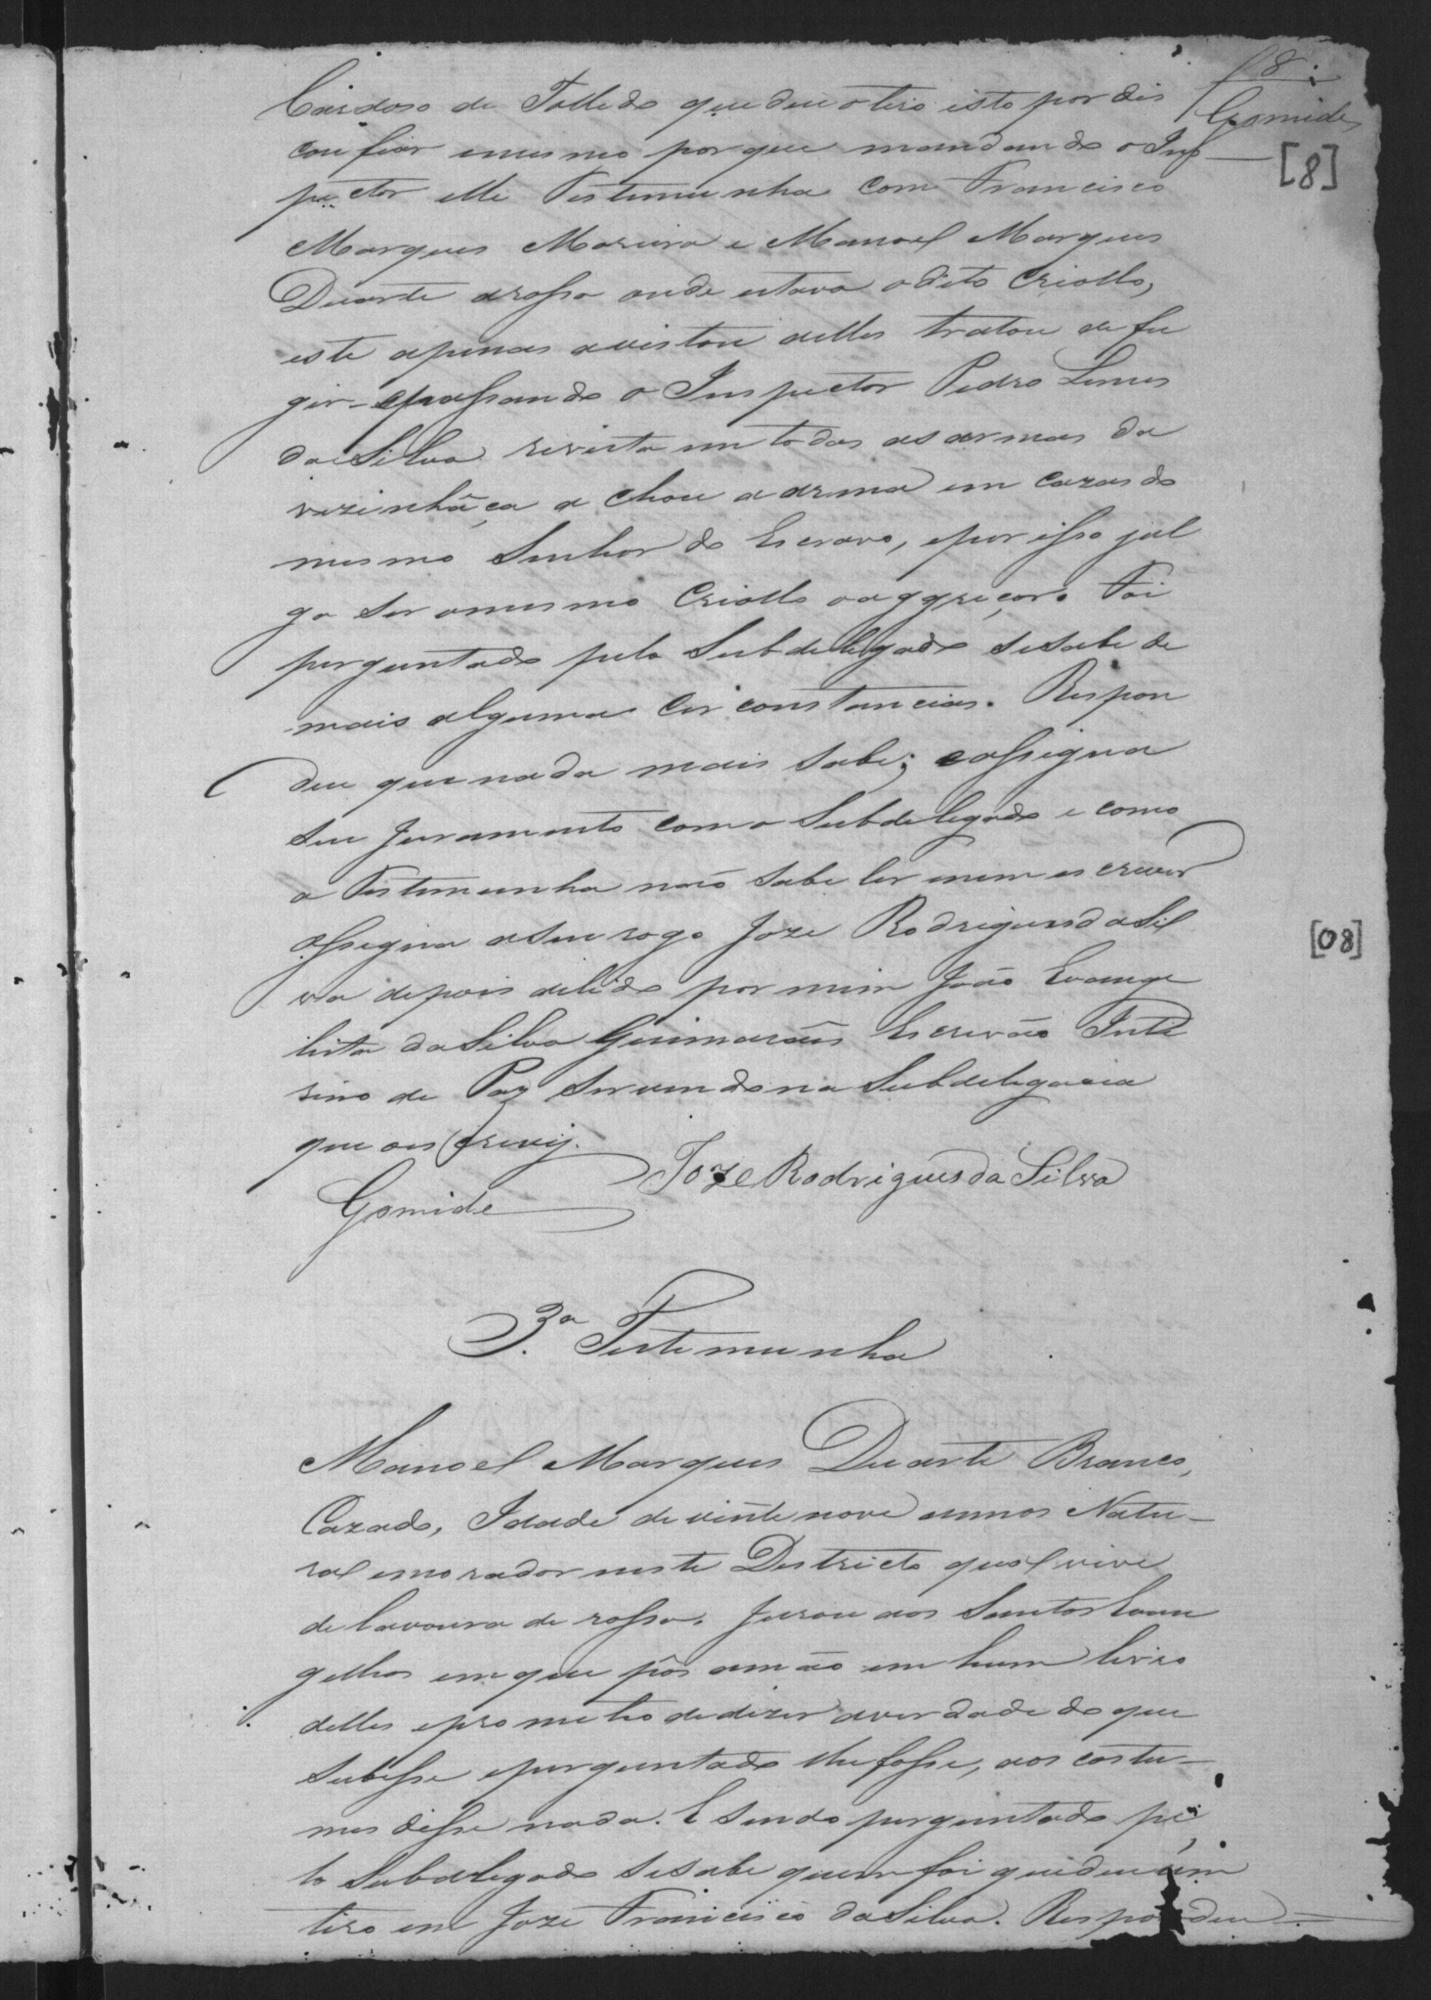 8
Gomide
[8]
Cardoso de Tolledo que deu o tiro isto por dis
confiar e mesmo porque mandando o Ins
pector elle Testemunha com Francisco
Marques Moreira e Manoel Marques
Duarte arossa onde estava o dito Criollo,
este apenas avistou delles tratou de fu
gir e passando o Inspector Pedro Lemes
da Silva revista em todas as armas da
vezinhãça achou a arma em cazas do
mesmo Senhor do Escravo, epor isso jul
ga ser omesmo Criollo o aggreçor. Foi
perguntado pelo Subdelegado sesabe de
mais alguma circonstancias. Respon
deu que nada mais sabe; eassigna
seu juramento com o Subdelegado e como
a Testemunha não sabe ler enem escrever
assigna aseu rogo Joze Rodrigues da Sil
va depois delido por mim João Evange
lista da Silva Guimarães Escrivão Inte
rino de Paz servindo na Subdelegacia
que o escrevij.
Joze Rodrigues da Silva
Gomide
[08]
3.ª Testemunha
Manoel Marques Duarte Branco,
Cazado, Idade de vinte nove annos Natu-
ral emorador neste Destricto qual vive
de lavoura de rossa. Jurou aos Santos Evan
gelhos em que pôs amão em hum livro
delles eprometeo dedizer averdade do que
subesse eperguntado lhe fosse, aos costu-
mes disse nada. E sendo perguntado pe
lo Subdelegado sesabe quem foi quedeu um
tiro em Joze Francisco da Silva. Respondeu